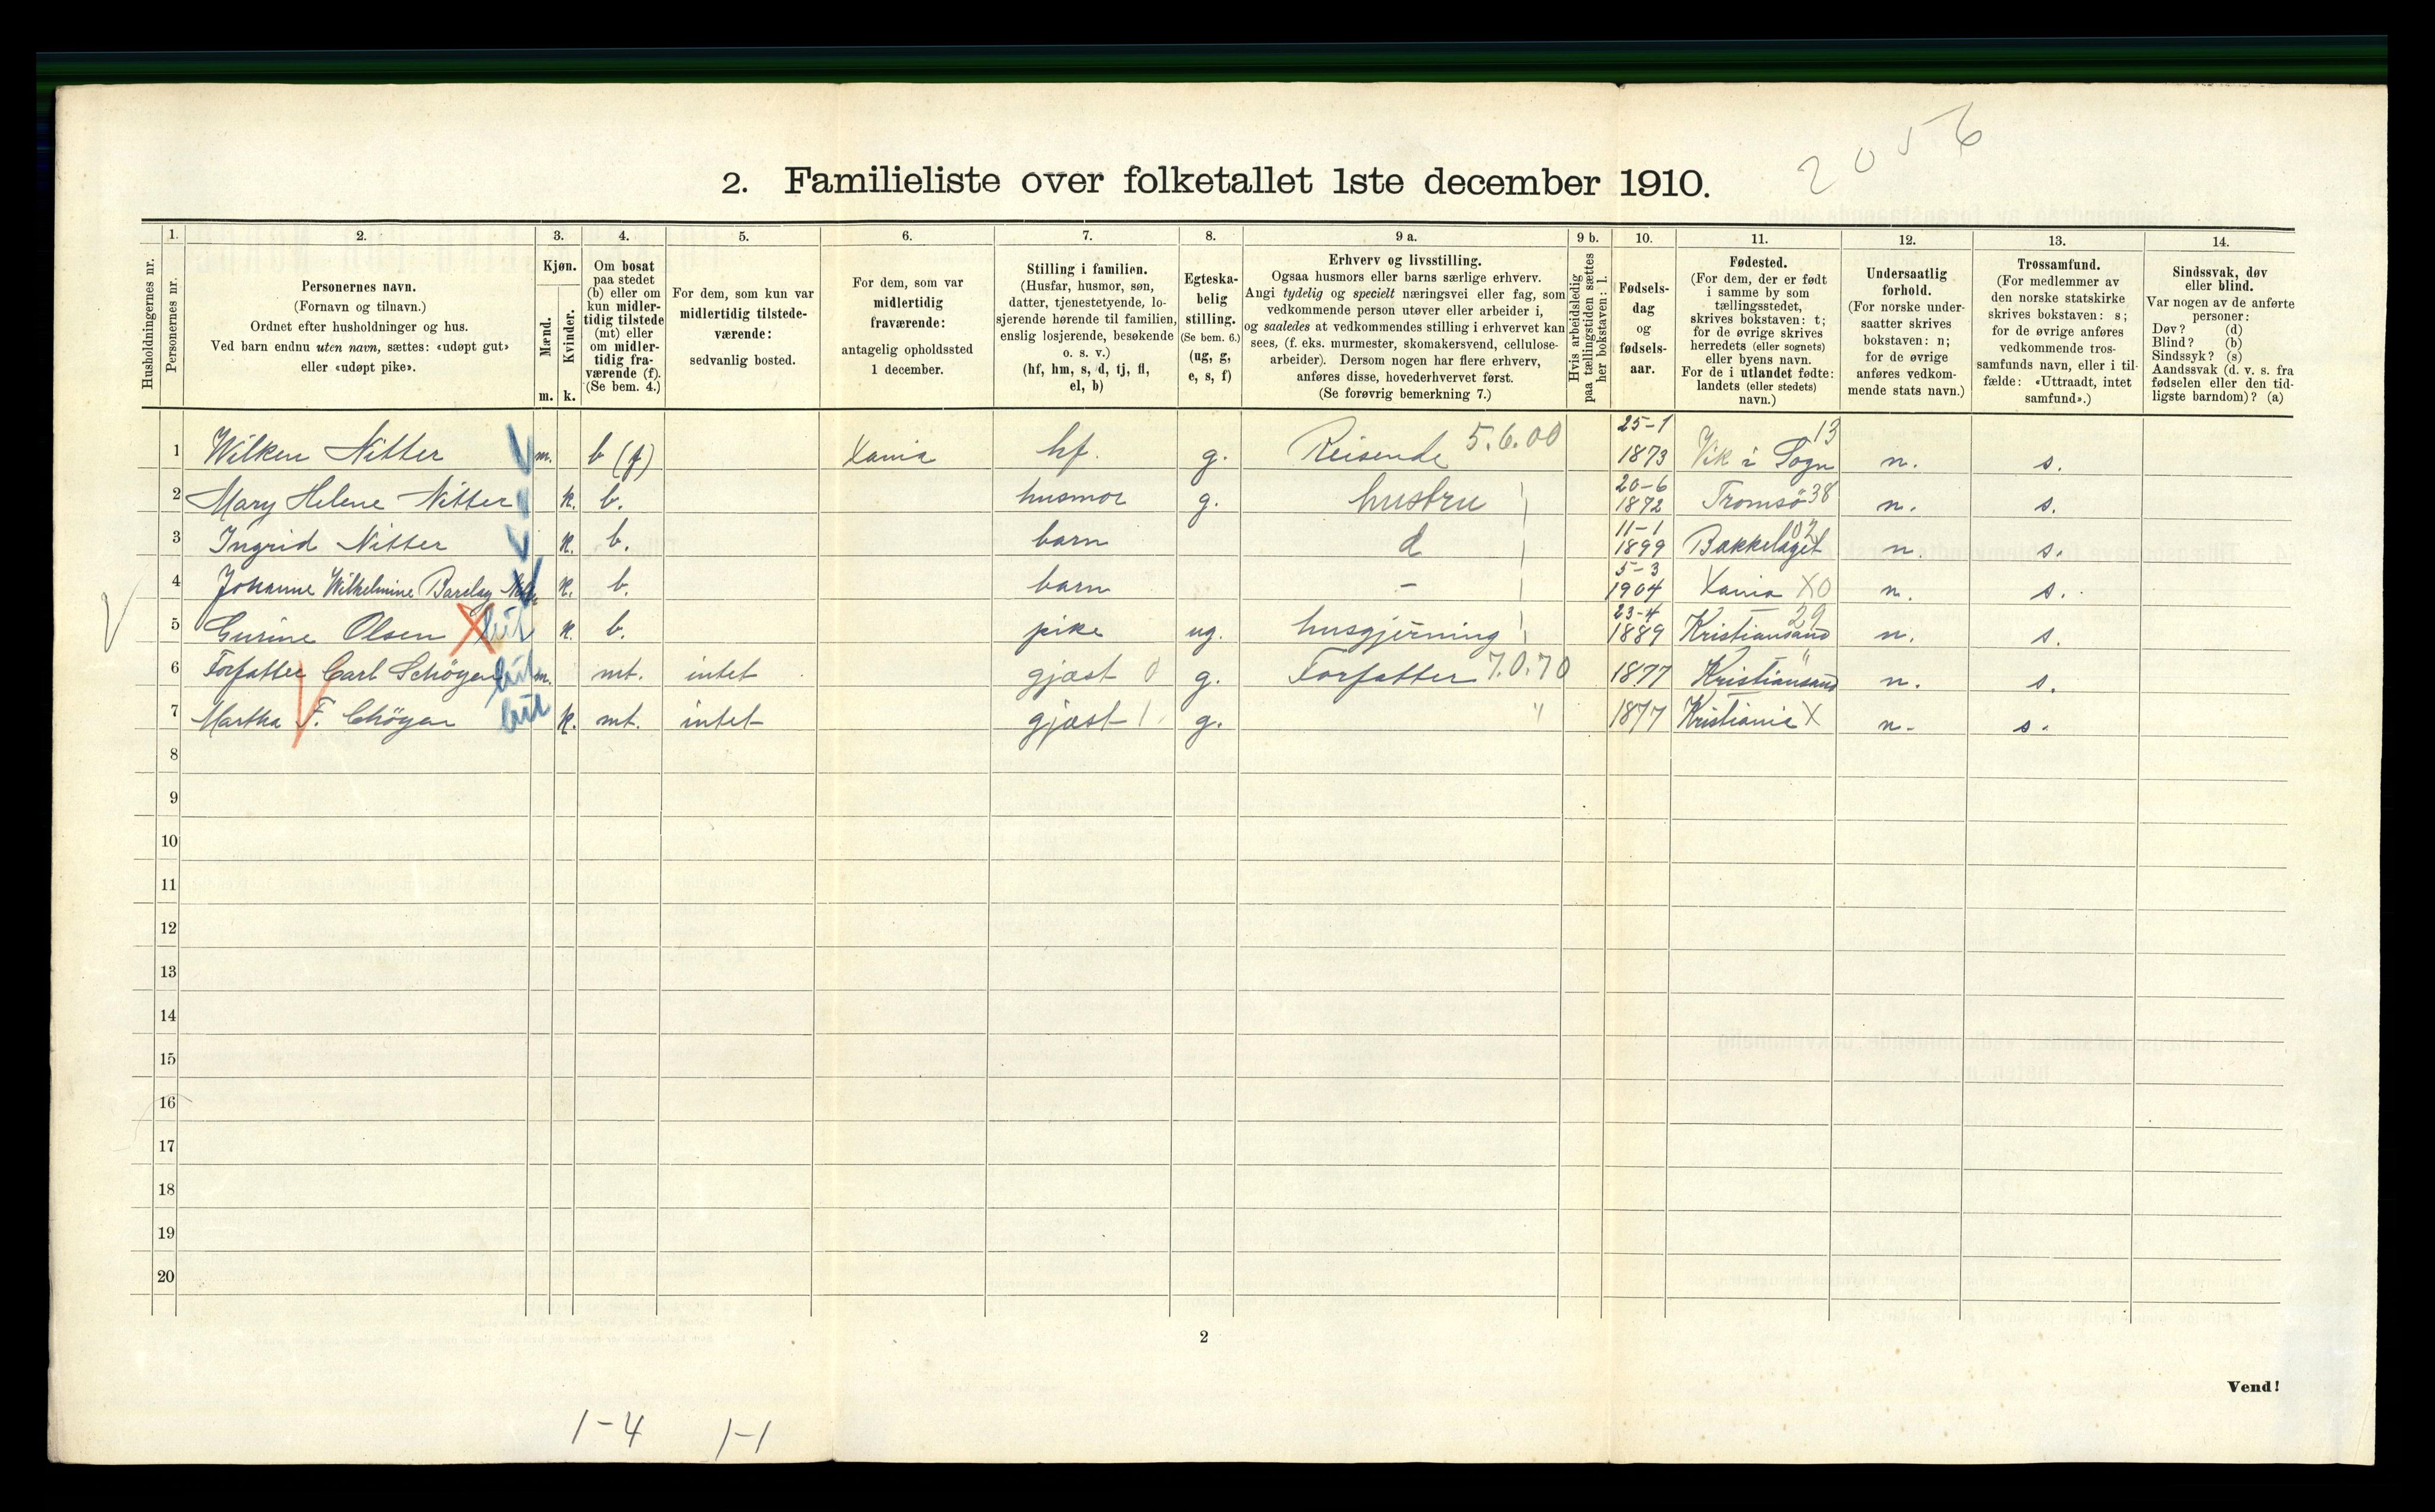 2056
2. Familieliste over folketallet 1ste december 1910.
Husholdningernes nr.
1. Personernes nr.
2. Personernes navn. (Fornavn og tilnavn.) Ordnet efter husholdninger og hus. Ved barn endnu uten navn, sættes: «udøpt gut» eller «udøpt pike».
3. Kjøn. Mænd. m. Kvinder. k.
4. Om bosat paa stedet (b) eller om kun midlertidig tilstede (mt) eller om midlertidig fraværende (f). (Se bem. 4.)
5. For dem, som kun var midlertidig tilstedeværende: sedvanlig bosted.
6. For dem, som var midlertidig fraværende: antagelig opholdssted 1 december.
7. Stilling i familien. (Husfar, husmor, søn, datter, tjenestetyende, losjerende hørende til familien, enslig losjerende, besøkende o. s. v.) (hf, hm, s, d, tj, fl, el, b)
8. Egteskabelig stilling. (Se bem. 6.) (ug, g, e, s, f)
9 a. Erhverv og livsstilling. Ogsaa husmors eller barns særlige erhverv. Angi tydelig og specielt næringsvei eller fag, som vedkommende person utøver eller arbeider i, og saaledes at vedkommendes stilling i erhvervet kan sees, (f. eks. murmester, skomakersvend, cellulosearbeider). Dersom nogen har flere erhverv, anføres disse, hovederhvervet først. (Se forøvrig bemerkning 7.)
9 b. Hvis arbeidsledig paa tællingstiden sættes her bokstaven: l.
10. Fødselsdag og fødselsaar.
11. Fødested. (For dem, der er født i samme by som tællingsstedet, skrives bokstaven: t; for de øvrige skrives herredets (eller sognets) eller byens navn. For de i utlandet fødte: landets (eller stedets) navn.)
12. Undersaatlig forhold. (For norske undersaatter skrives bokstaven: n; for de øvrige anføres vedkommende stats navn.)
13. Trossamfund. (For medlemmer av den norske statskirke skrives bokstaven: s; for de øvrige anføres vedkommende trossamfunds navn, eller i tilfælde: «Uttraadt, intet samfund».)
14. Sindssvak, døv eller blind. Var nogen av de anførte personer: Døv? (d) Blind? (b) Sindssyk? (s) Aandssvak (d. v. s. fra fødselen eller den tidligste barndom)? (a)
1 Wilken Nitter m. b (f) Xania hf. g. Reisende 5.6.00 25-1 1873 Vik i Sogn 13 n. s.
2 Mary Helene Nitter k. b. husmor g. hustru 20-6 1872 Tromsø 38 n. s.
3 Ingrid Nitter k. b. barn d 11-1 1899 Bakkelaget 02 n. s.
4 Johanne Wilhelmine Barclay k. b. barn - 5-3 1904 Xania X0 n. s.
5 Gurine Olsen X k. b. pike ug. husgjerning 23-4 1889 Kristiansand 29 n. s.
6 Forfatter Carl Schøyen m. mt. intet gjæst g. Forfatter 7.0.70 1877 Kristiansand " n. s.
7 Martha F. Schøyen k. mt. intet gjæst 1 g. " 1877 Kristiania X n. s.
8
9
10
11
12
13
14
15
16
17
18
19
20
2
Vend!
1-4 1-1